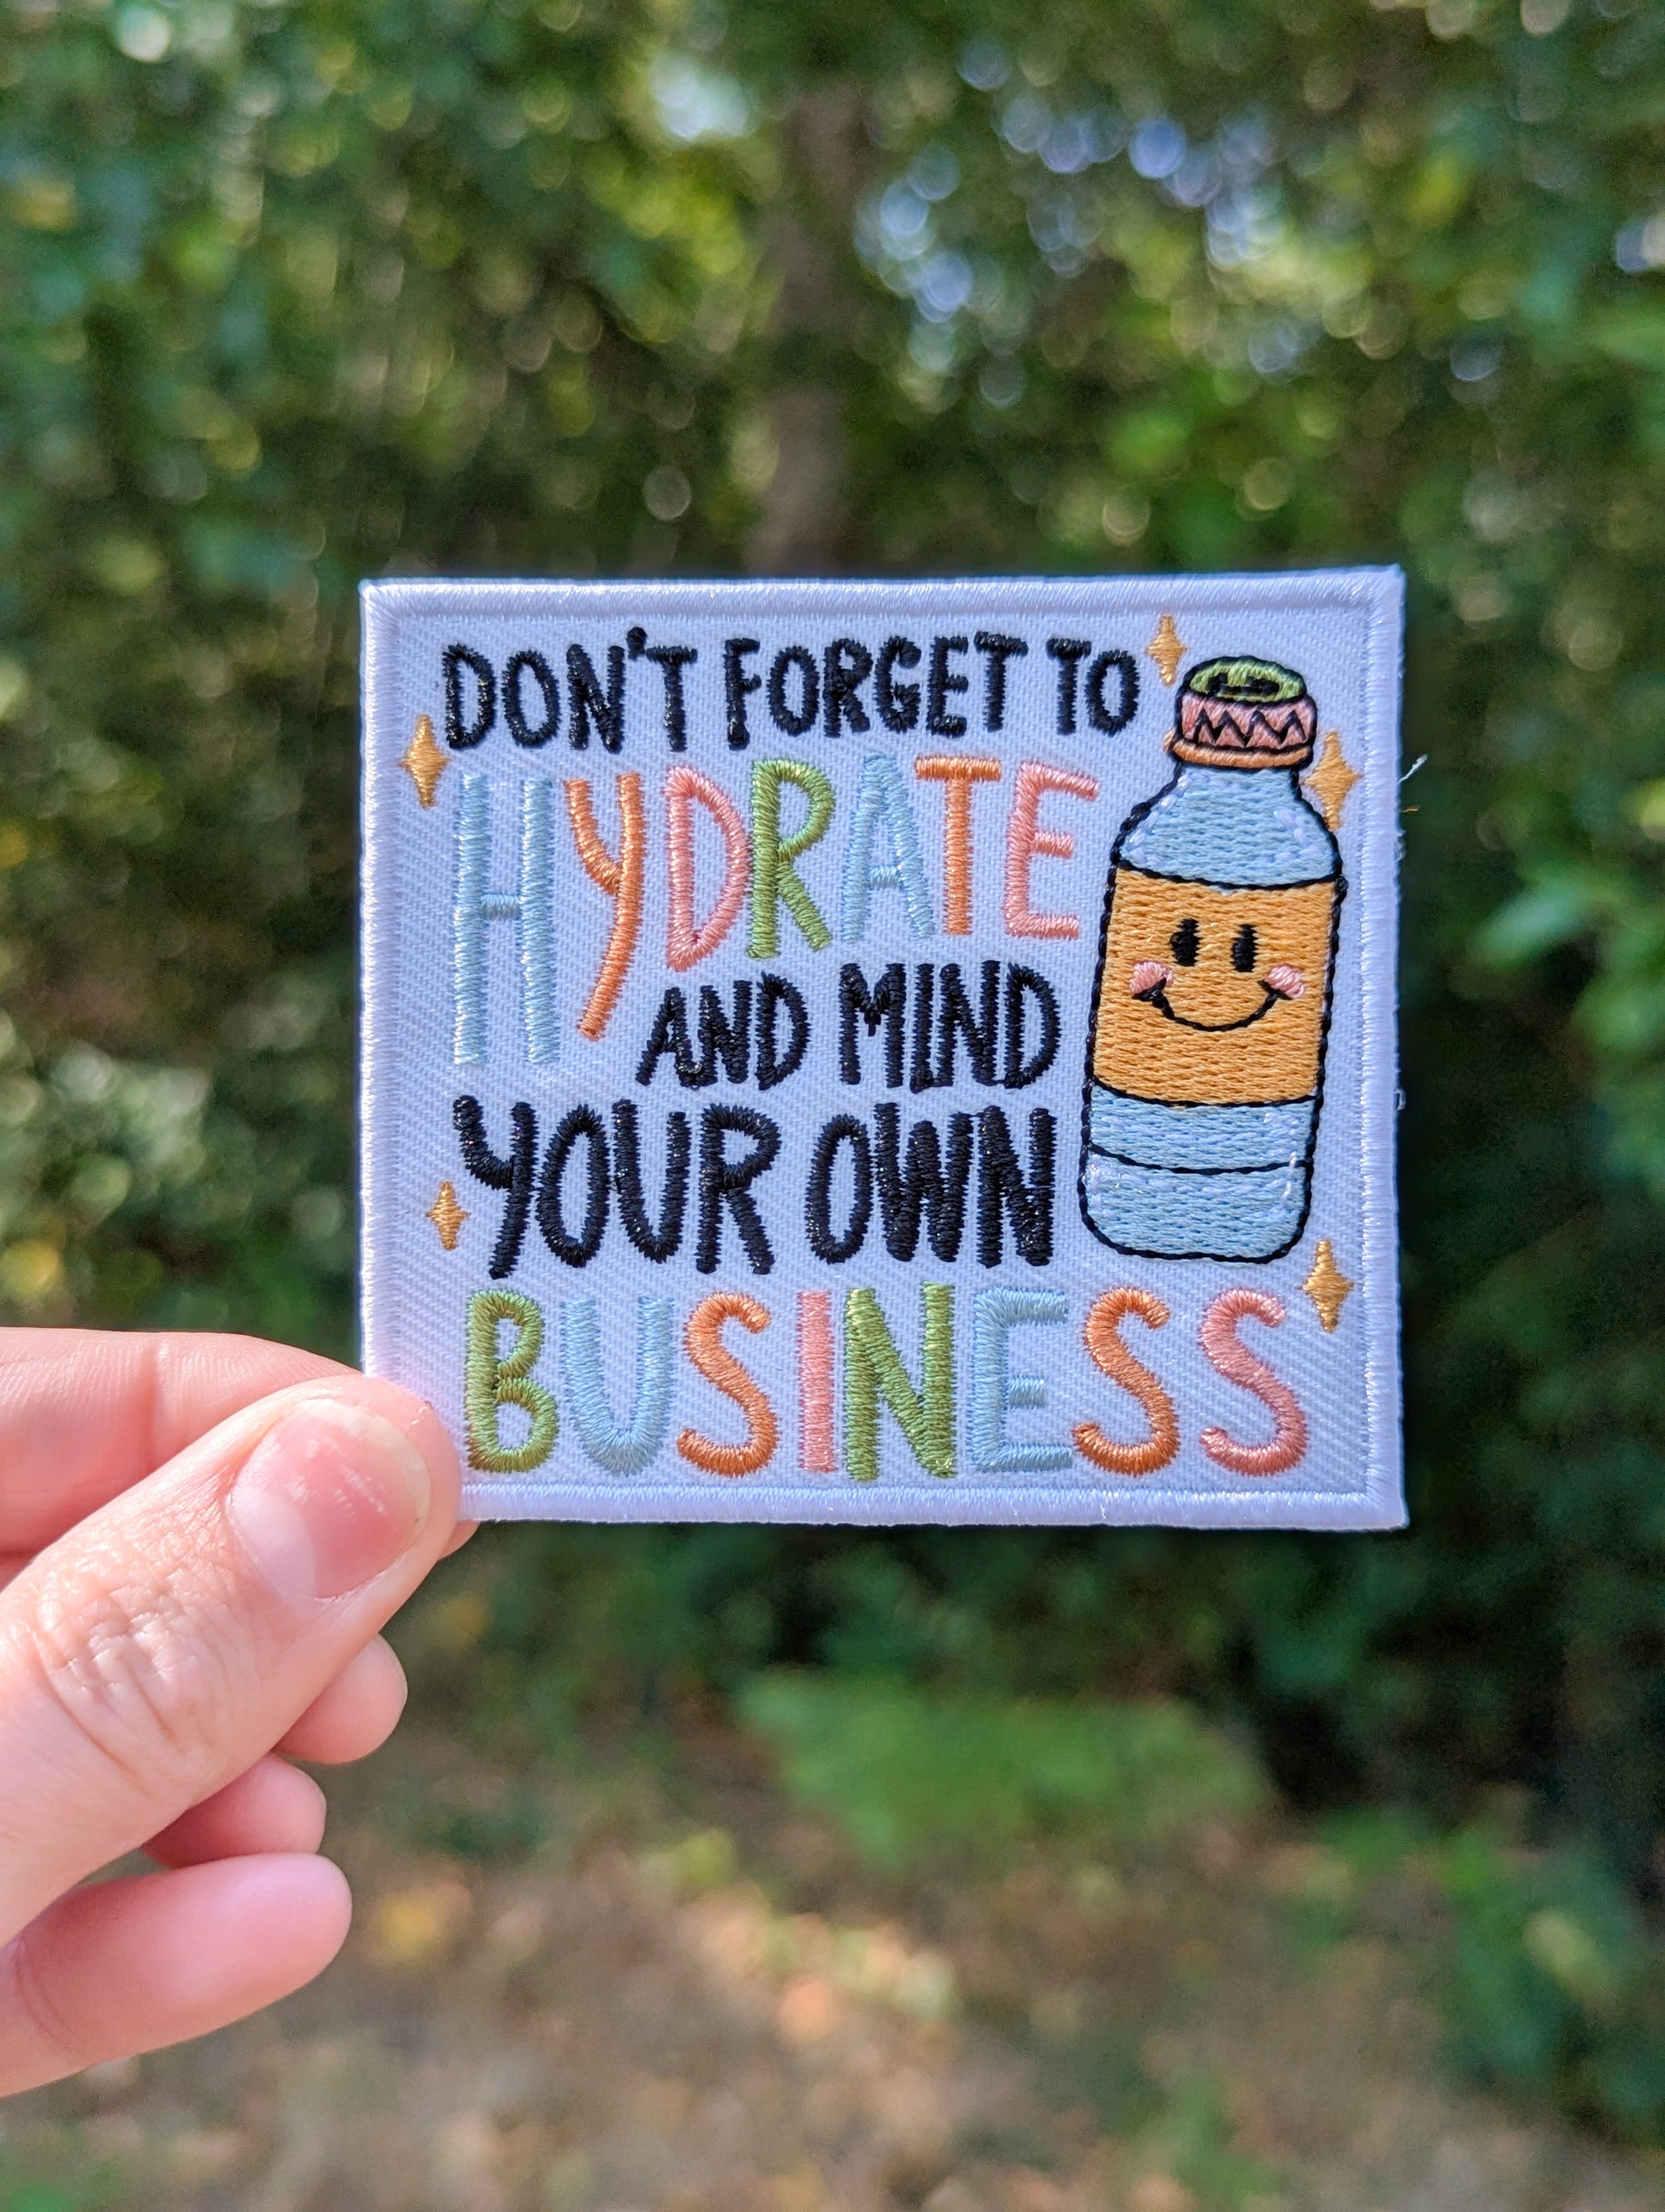 DON'T FORGET TO
HYDRATE
AND MIND
YOUR OWN
BUSINESS